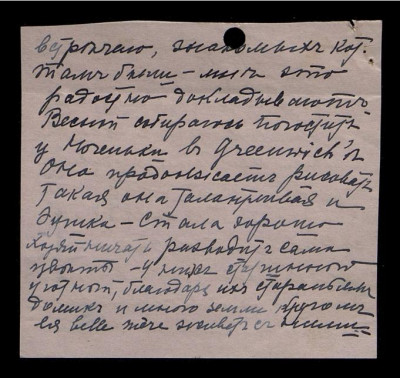 встрѣчаю, знакомыхъ кот.
тамъ были – мнѣ это
радостно докладываютъ
Весной собираюсь погостить
у Моеньки въ Greenwich'ѣ
она продолжаетъ рисовать
такая она талантливая и
душка – стала хорошо
хозяйничать разводитъ сама
цвѣты – у нихъ старинный
уютный, благодаря ихъ стараніямъ
домикъ и много земли кругомъ
belle mère живетъ съ ними